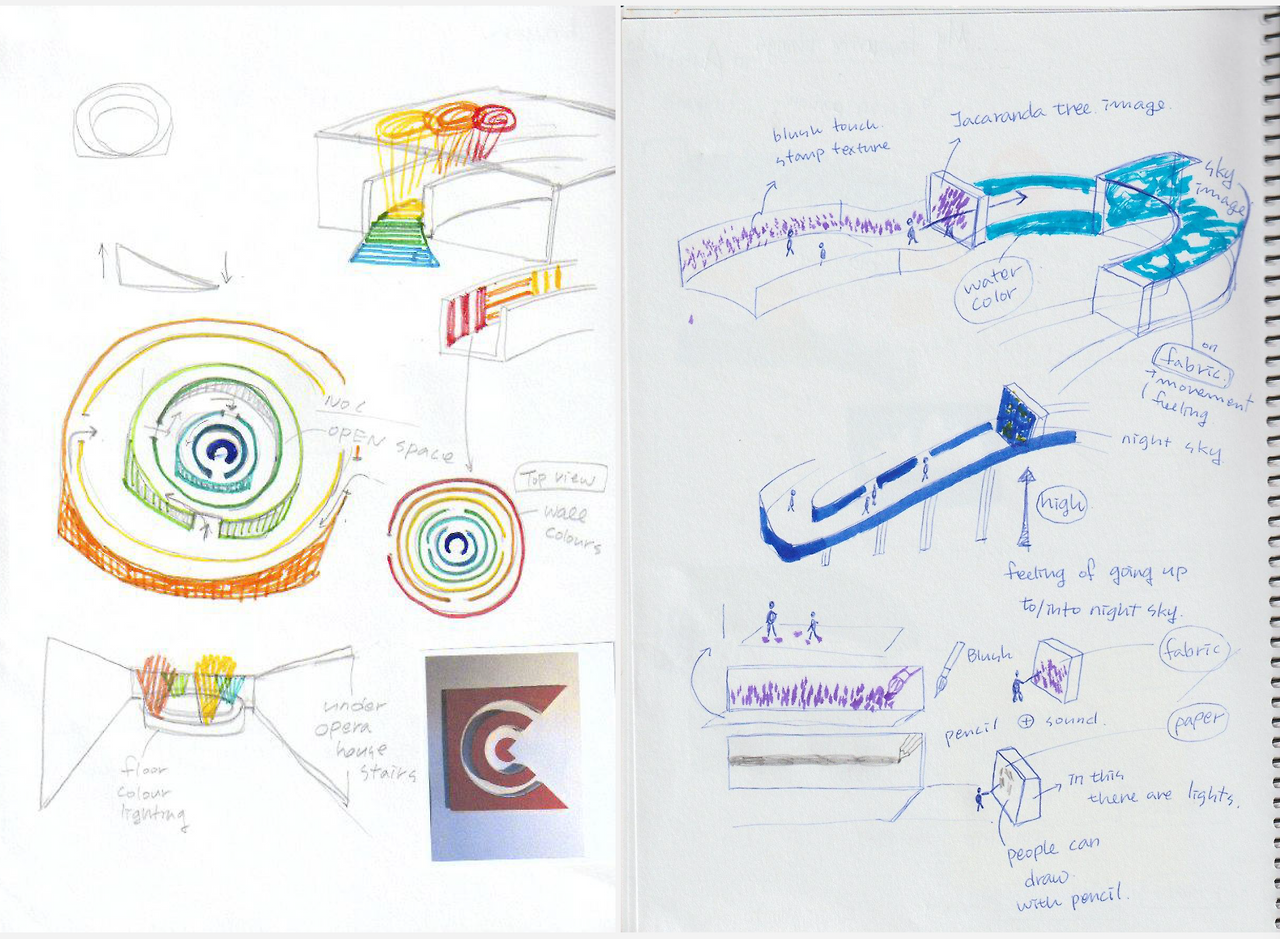 OPEN space
Top view
wall
colours
under
opera
house
stairs
floor
colour
lighting
Jacaranda tree image.
blush touch.
stamp texture
sky
image
water
color
on
fabric.
movement
feeling
night sky
high
feeling of going up
to/into night sky.
Blush
fabric
pencil ⊕ sound.
paper
in this
there are lights.
people can
draw
with pencil.